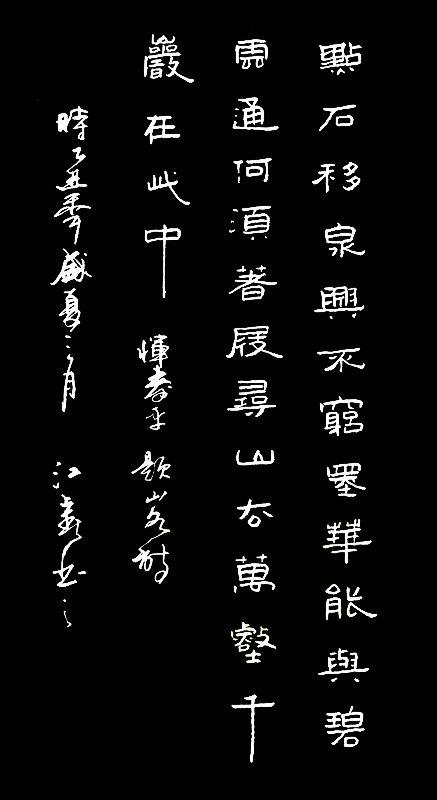 點石移泉興不窮墨華能與碧
雲通何須著屐尋山去萬壑千
巖在此中 惲壽平題詩
時乙丑年盛夏之月 江書之